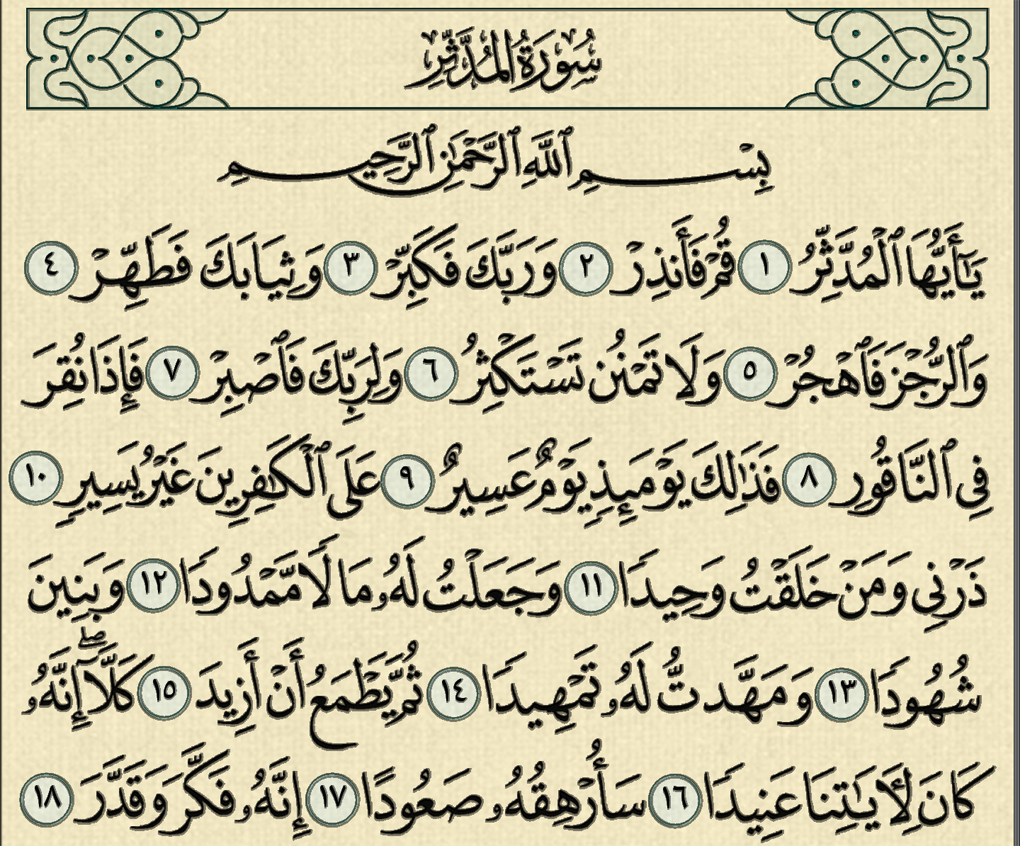 سُورَةُ المُدَّثِّرِ
بِسْمِ ٱللَّهِ ٱلرَّحْمَٰنِ ٱلرَّحِيمِ
يَٰٓأَيُّهَا ٱلْمُدَّثِّرُ ١ قُمْ فَأَنذِرْ ٢ وَرَبَّكَ فَكَبِّرْ ٣ وَثِيَابَكَ فَطَهِّرْ ٤
وَٱلرُّجْزَ فَٱهْجُرْ ٥ وَلَا تَمْنُن تَسْتَكْثِرُ ٦ وَلِرَبِّكَ فَٱصْبِرْ ٧ فَإِذَا نُقِرَ
فِى ٱلنَّاقُورِ ٨ فَذَٰلِكَ يَوْمَئِذٍ يَوْمٌ عَسِيرٌ ٩ عَلَى ٱلْكَٰفِرِينَ غَيْرُ يَسِيرٍ ١٠
ذَرْنِى وَمَنْ خَلَقْتُ وَحِيدًا ١١ وَجَعَلْتُ لَهُۥ مَالًا مَّمْدُودًا ١٢ وَبَنِينَ
شُهُودًا ١٣ وَمَهَّدتُّ لَهُۥ تَمْهِيدًا ١٤ ثُمَّ يَطْمَعُ أَنْ أَزِيدَ ١٥ كَلَّآ ۖ إِنَّهُۥ
كَانَ لِـَٔايَٰتِنَا عَنِيدًا ١٦ سَأُرْهِقُهُۥ صَعُودًا ١٧ إِنَّهُۥ فَكَّرَ وَقَدَّرَ ١٨